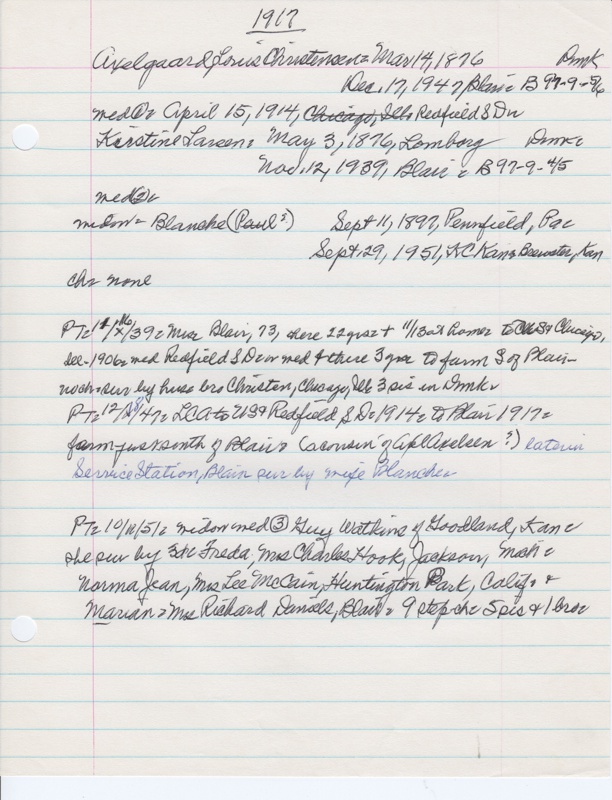 1917
Axelgaard, Louis Christensen = Mar 14, 1876 Dmk
Dec. 17, 1947, Blair = B 97-9-
med ① = April 15, 1914, Chicago, Ills Redfield S D
Kirstine Larsen = May 3, 1876, Lemborg Dmk =
Nov. 12, 1939, Blair = B 97-9-4/5
med ② =
widow = Blanche (Paul ?) Sept 11, 1897, Pennfield, Pa
Sept. 29, 1951, KC Kan = Brewster, Kan
ch = none
PT = /39 = Mrs Blair, 73, here 22 yrs + 11/13 at home = to Chicago,
dec - 1906 = med Redfield S D = med + there 3 yrs to farm S of Blair -
no ch = sur by husb bro Christen, Chicago, Ills 3 sis in Dmk =
PT = 12/18/47 = LCA to US + Redfield S D = 1914 = to Blair 1917 =
farm just south of Blair = (a cousin of Axelsen ?) later in
Service Station, Blair sur by wife Blanche =
PT = 10/11/51 = widow med ③ Guy Watkins of Goodland, Kan =
she sur by 3 ch Freda, Mrs Charles Hook, Jackson, Mich =
Norma Jean, Mrs Lee McCain, Huntington Park, Calif = +
Marian = Mrs Richard Daniels, Blair = 9 step ch = 5 sis + 1 bro =